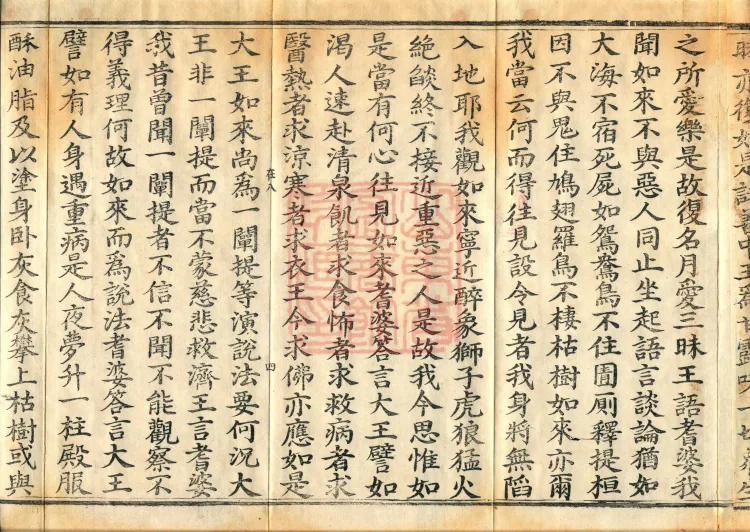 昧亦復如是諸善中王爲甘露味一切衆生
之所愛樂是故復名月愛三昧王語耆婆我
聞如來不與惡人同止坐起語言談論猶如
大海不宿死屍如鴛鴦鳥不住圊厠釋提桓
因不與鬼住鳩翅羅鳥不棲枯樹如來亦爾
我當云何而得往見設令見者我身將無陷
入地耶我觀如來寧近醉象獅子虎狼猛火
絶燄終不接近重惡之人是故我今思惟如
是當有何心往見如來耆婆答言大王譬如
渴人速赴清泉飢者求食怖者求救病者求
醫熱者求涼寒者求衣王今求佛亦應如是
在八 四
大王如來尚爲一闡提等演說法要何況大
王非一闡提而當不蒙慈悲救濟王言耆婆
我昔曾聞一闡提者不信不聞不能觀察不
得義理何故如來而爲說法耆婆答言大王
譬如有人身遇重病是人夜夢升一柱殿服
酥油脂及以塗身卧灰食灰攀上枯樹或與